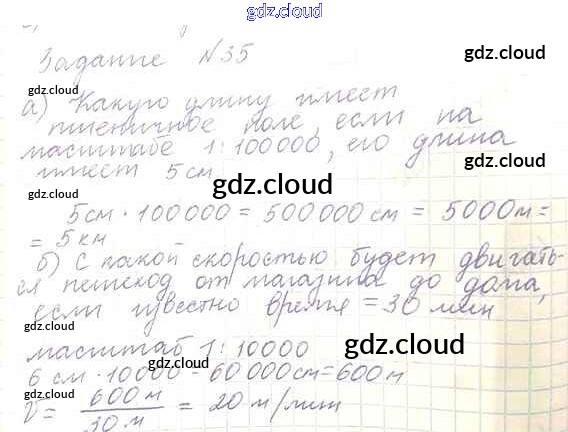 gdz.cloud
Задание №35
gdz.cloud
gdz.cloud
а) Какую длину имеет
пшеничное поле, если на
масштабе 1:100000, его длина
имеет 5 см
gdz.cloud
gdz.cloud
gdz.cloud
5см · 100000 = 500000 см = 5000м =
= 5 км
б) С какой скоростью будет двигать-
ся пешеход от магазина до дома,
gdz.cloud
если известно время = 30 мин
gdz.cloud
масштаб 1:10000
gdz.cloud
6 см · 10000 = 60000см = 600м
V = 600 м / 30 м = 20 м/мин
gdz.cloud
gdz.cloud